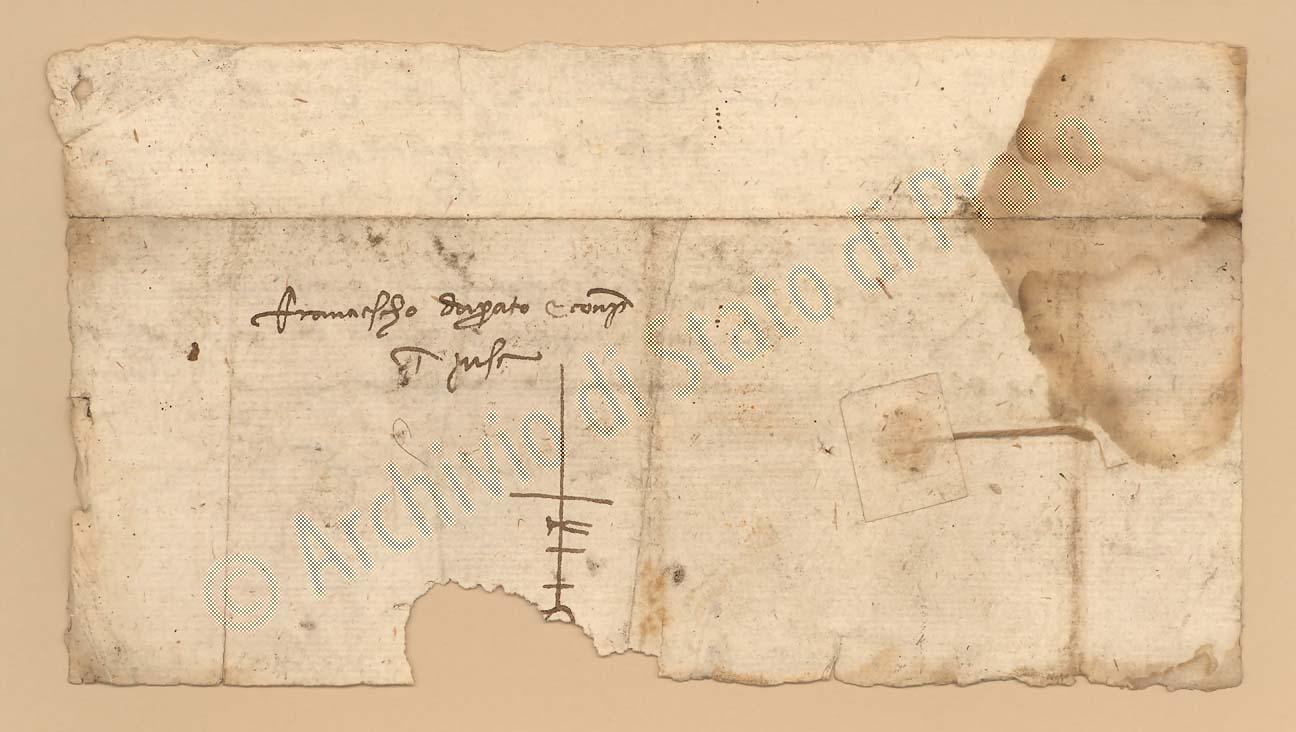 Franciescho da prato e conp
in pisa
© Archivio di Stato di Prato